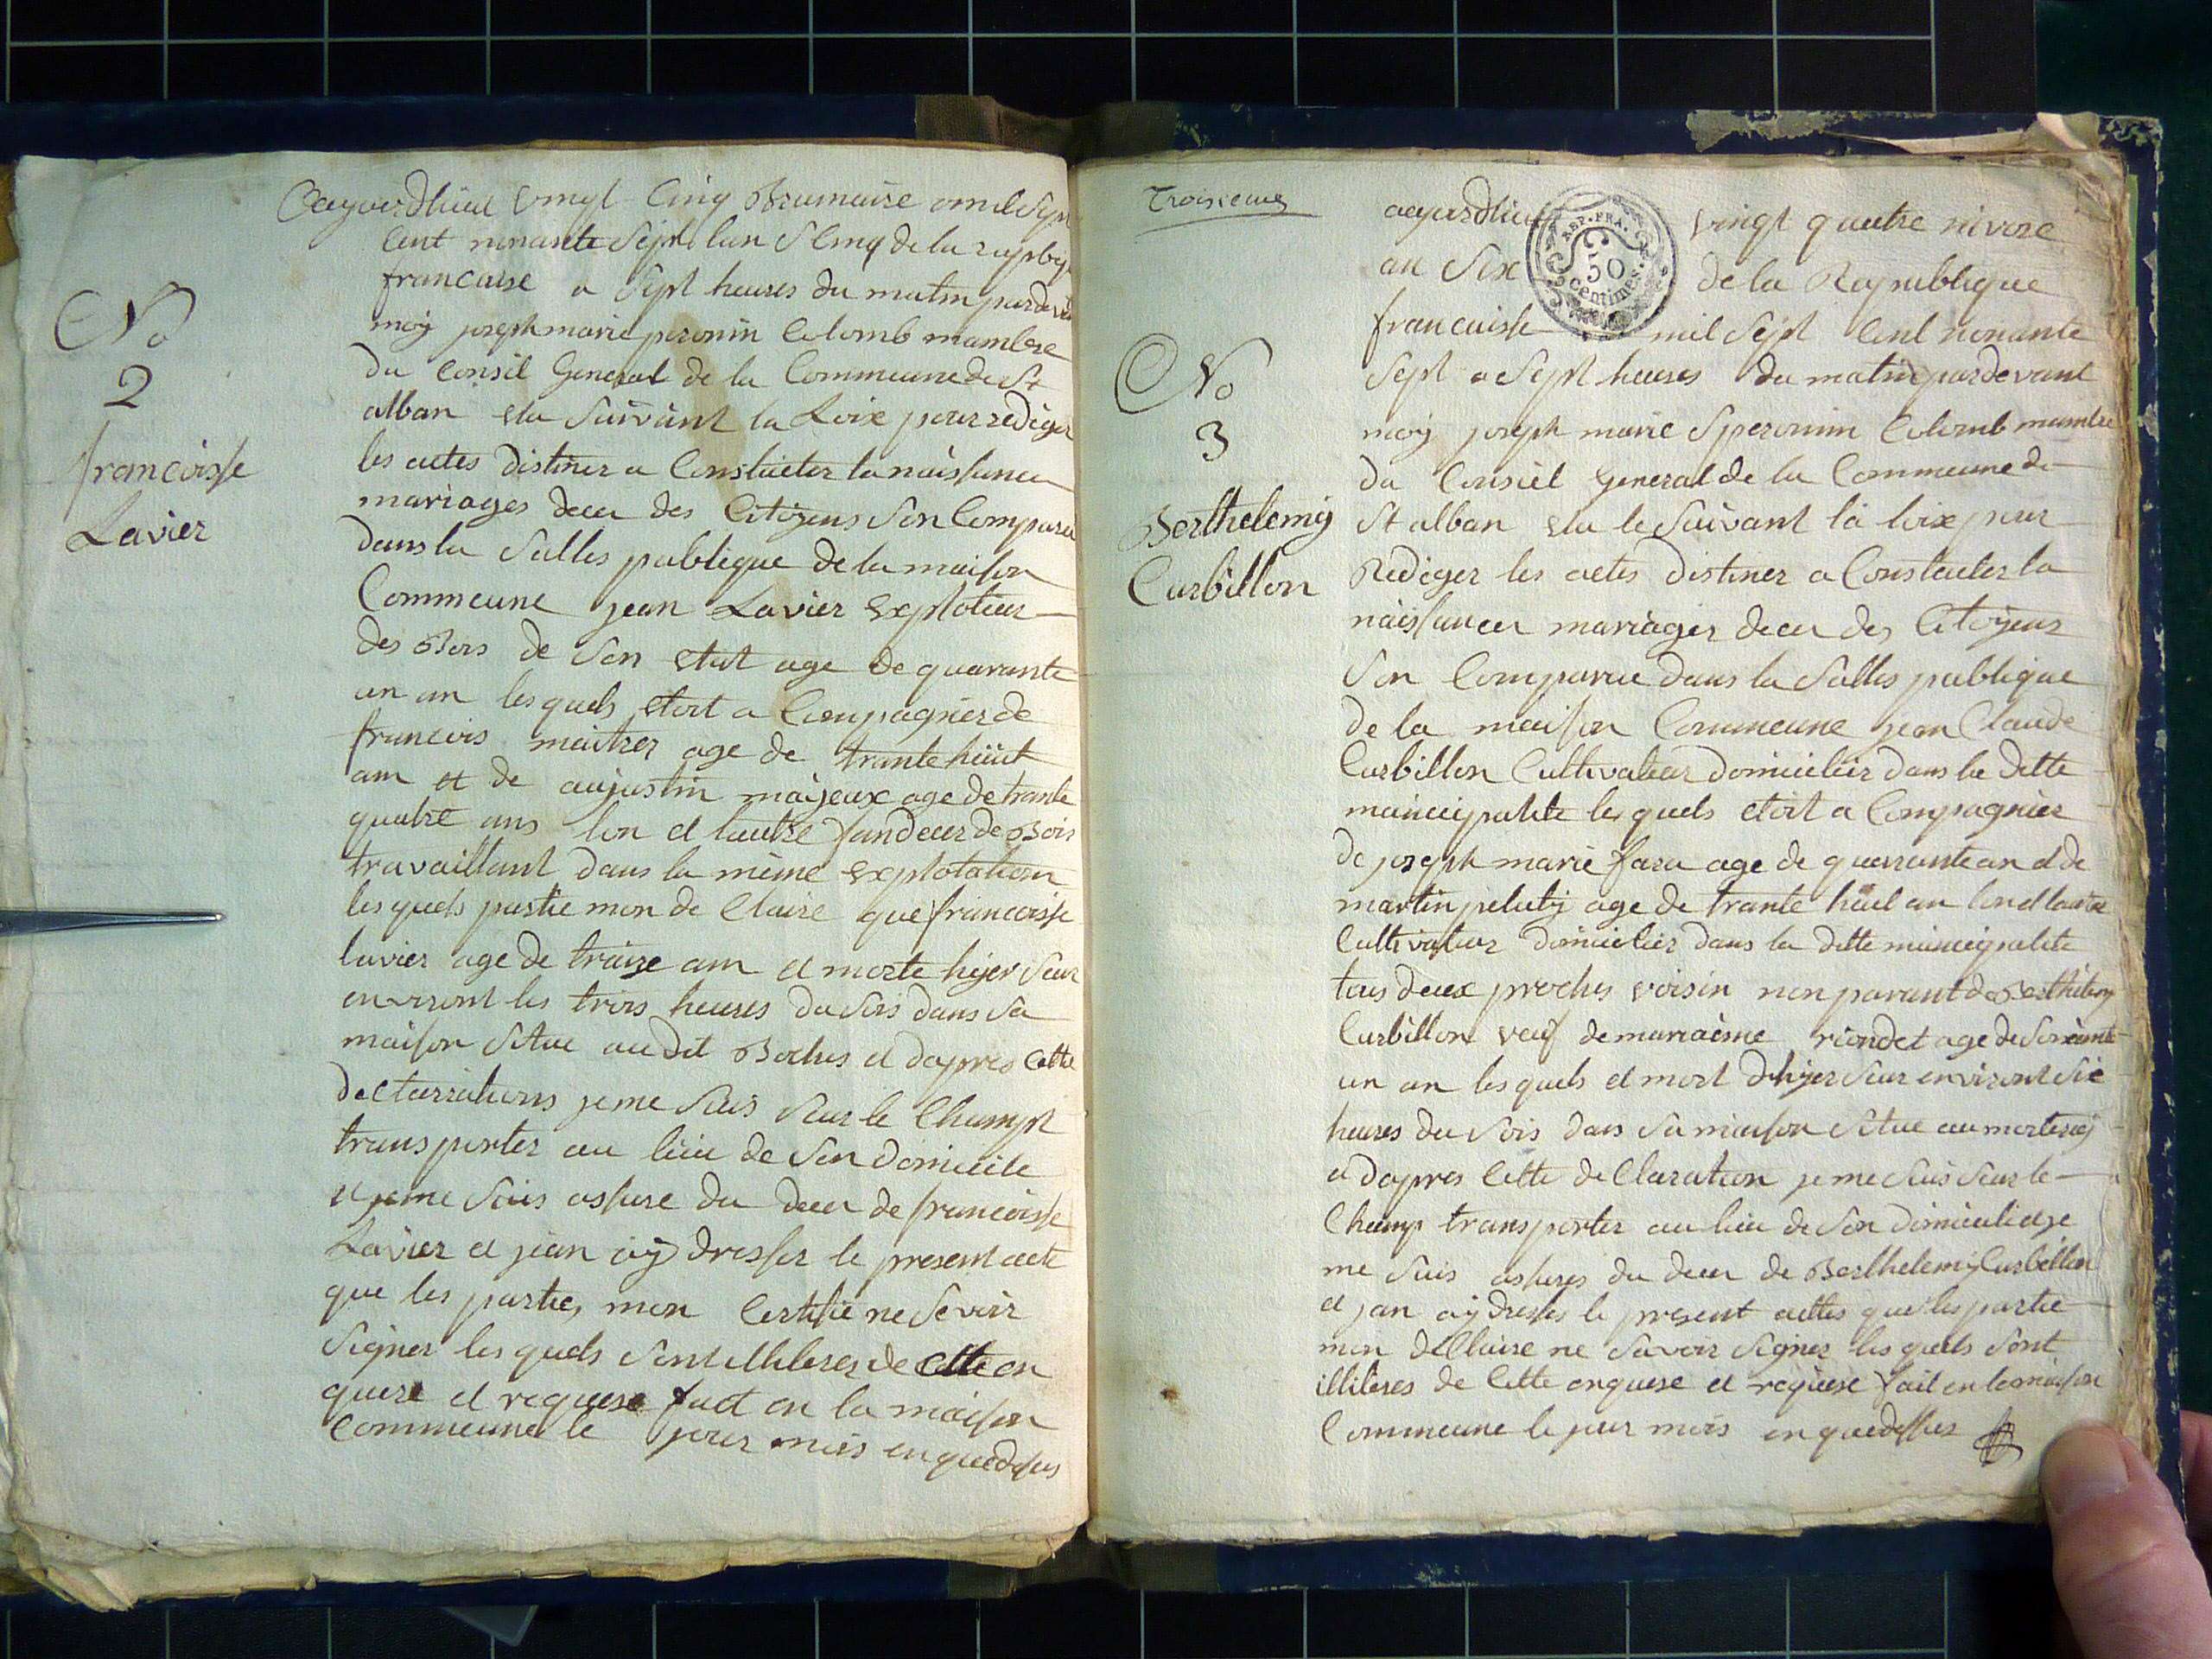 No
2
francoisse
Lavier
aujourdhuit vingt Cinq Brumaire omil Sept
Cent nonante Sept lan Cinq de la
francaise a Sept heures du matin pardevant
moy joseph marie peronin Colomb mambre
Du Consil General de la Commeune de St
alban elu Suivant la Loix pour rediger
les actes distiner a Constacter la naissance
mariages deces des Citoyens Son Comparu
Dans la Salles publique de la maison
Commeune jean Lavier Exploteur
des Bois de Son etat age de quarante
un an lesquels etoit a Compagnier de
francois maitrer age de trante huit
am et de aujustin majeux age de trante
quatre ans lon et lautre fandeur de Bois
travaillant dans la même Explotation
les quels partie mon de Claire que francoisse
lavier age de traize am et morte hyer Sur
environt les trois heures du Soir dans Sa
maison Situe audit Boches et dapres Cette
declarrations je me Suis Sur le Champt
transporter au lieu de Son domicile
et je me Suis assure du deces de francoisse
Lavier et jean aÿ dresser le present acte
que les partie, mon Certifie ne Sevoir
Signer les quels Sont illiteres de Cette en
quese et requese fait en la maison
Commeune le jour mois en quedesus
Troisieme
No
3
Berthelemy
Curbillon
aujourdhuit vingt quatre nivose
REP. FRA.
50
centimes.
an Six de la Republique
francaisse mil Sept Cent nonante
Sept a Sept heures du matin pardevant
moy joseph marie Speronin Colomb mambre
du Consiel General de la Commeune de
St alban elu le Suivant la loix pour
Rediger les actes distiner a Constacter la
naissances mariages deces des Citoyens
Son Comparu dans la Salles publique
de la maison Commeune jean Claude
Curbillon Cultivateur domicilier dans la ditte
municipalite les quels etoit a Compagnier
de joseph marie fara age de quarante an et de
martin peluty age de trante huit an lon et lautre
Cultivateur domicilier dans la ditte municipalite
tous deux proches voisin non parant de Berthelemy
Curbillon veuf de mariaeme riondet age de Soixante
un an les quels et mort dhyer Sur environt Six
heures du Soir dans Sa maison Situe au morterey
a dapres Cette de Claration je me Suis Sur le
Champ transporter au lieu de Son domicilie et je
me Suis assures du deces de Berthelemy Curbillon
et jan aÿ dresses le present acttes que les partie
mon de Claire ne Savoir Signer les quels Sont
illiteres de Cette enquese et requese fait en la maison
Commeune le jour mois en quedessus